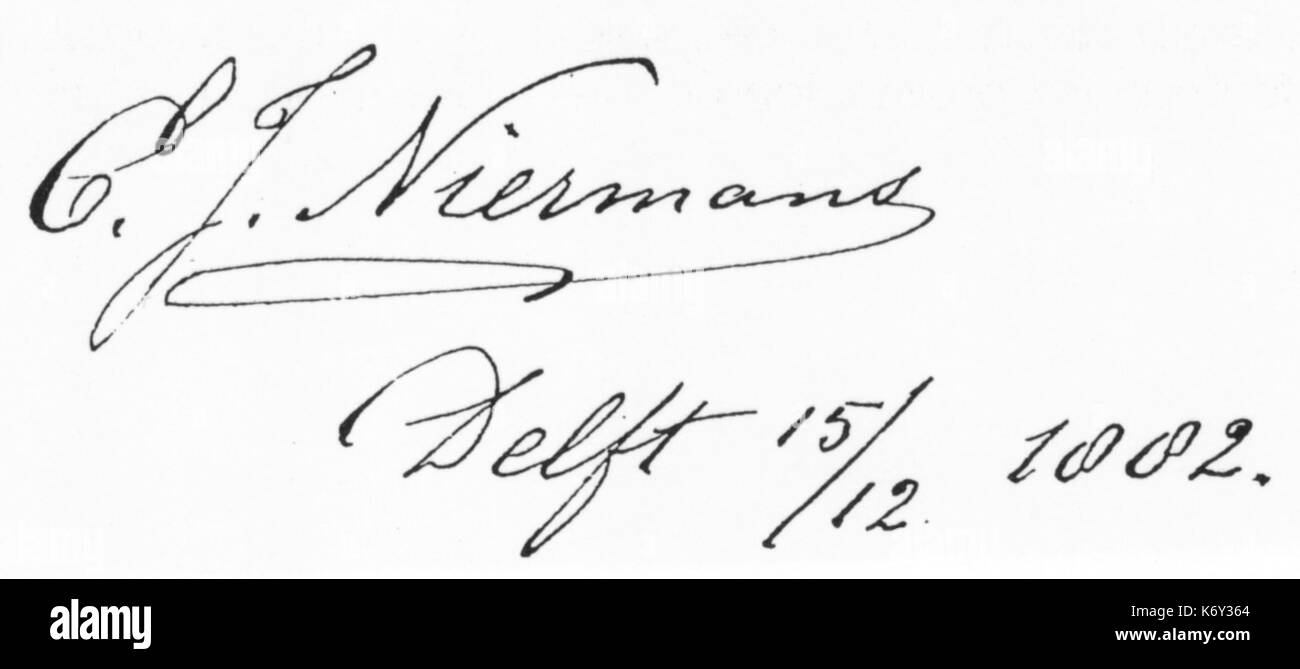 E. J. Niermans
Delft 15/12 1882.
alamy
Image ID: K6Y364
www.alamy.com